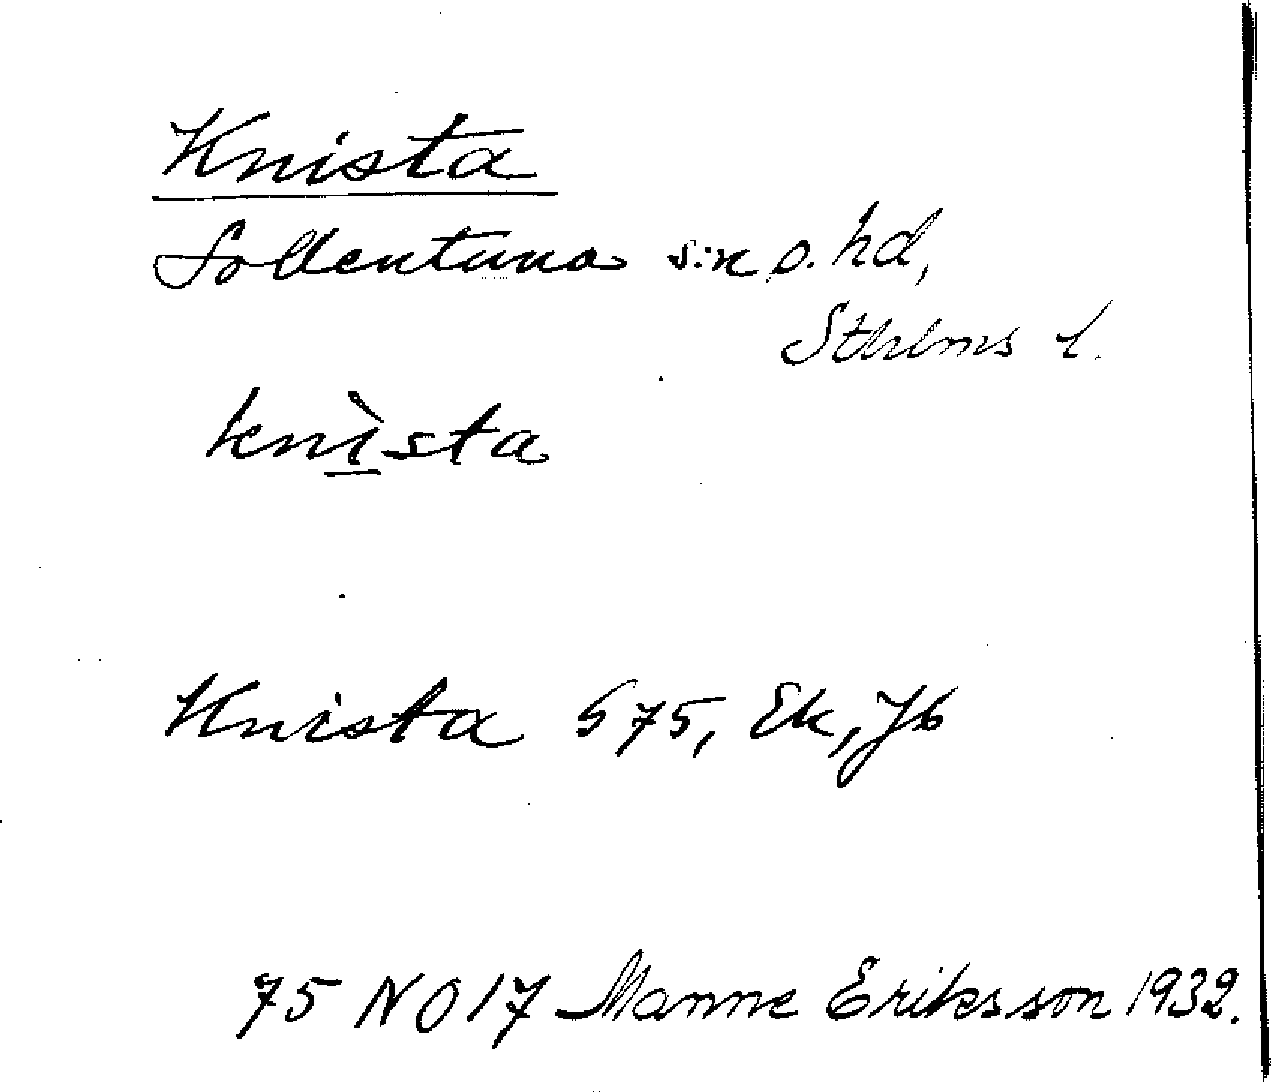 Knista
Sollentuna s:n o. hd,
Sthlms l.
knìsta
Knista G75, Ek, Jb
75 NO 17 Manne Eriksson 1932.